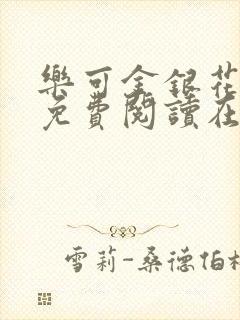 樂可金銀花
免費閱讀在
雪莉-桑德伯格